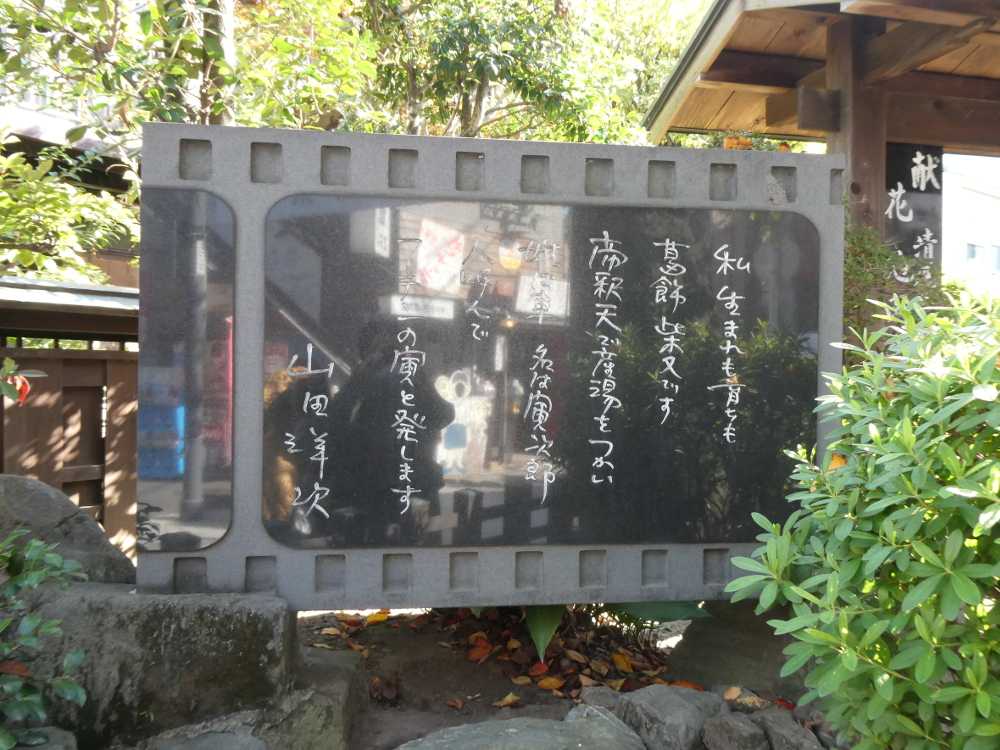 私 生まれも育ちも
葛飾 柴又です
帝釈天で産湯をつかい
姓は車 名は寅次郎
人呼んで
フーテンの寅と発します
山田洋次
献花